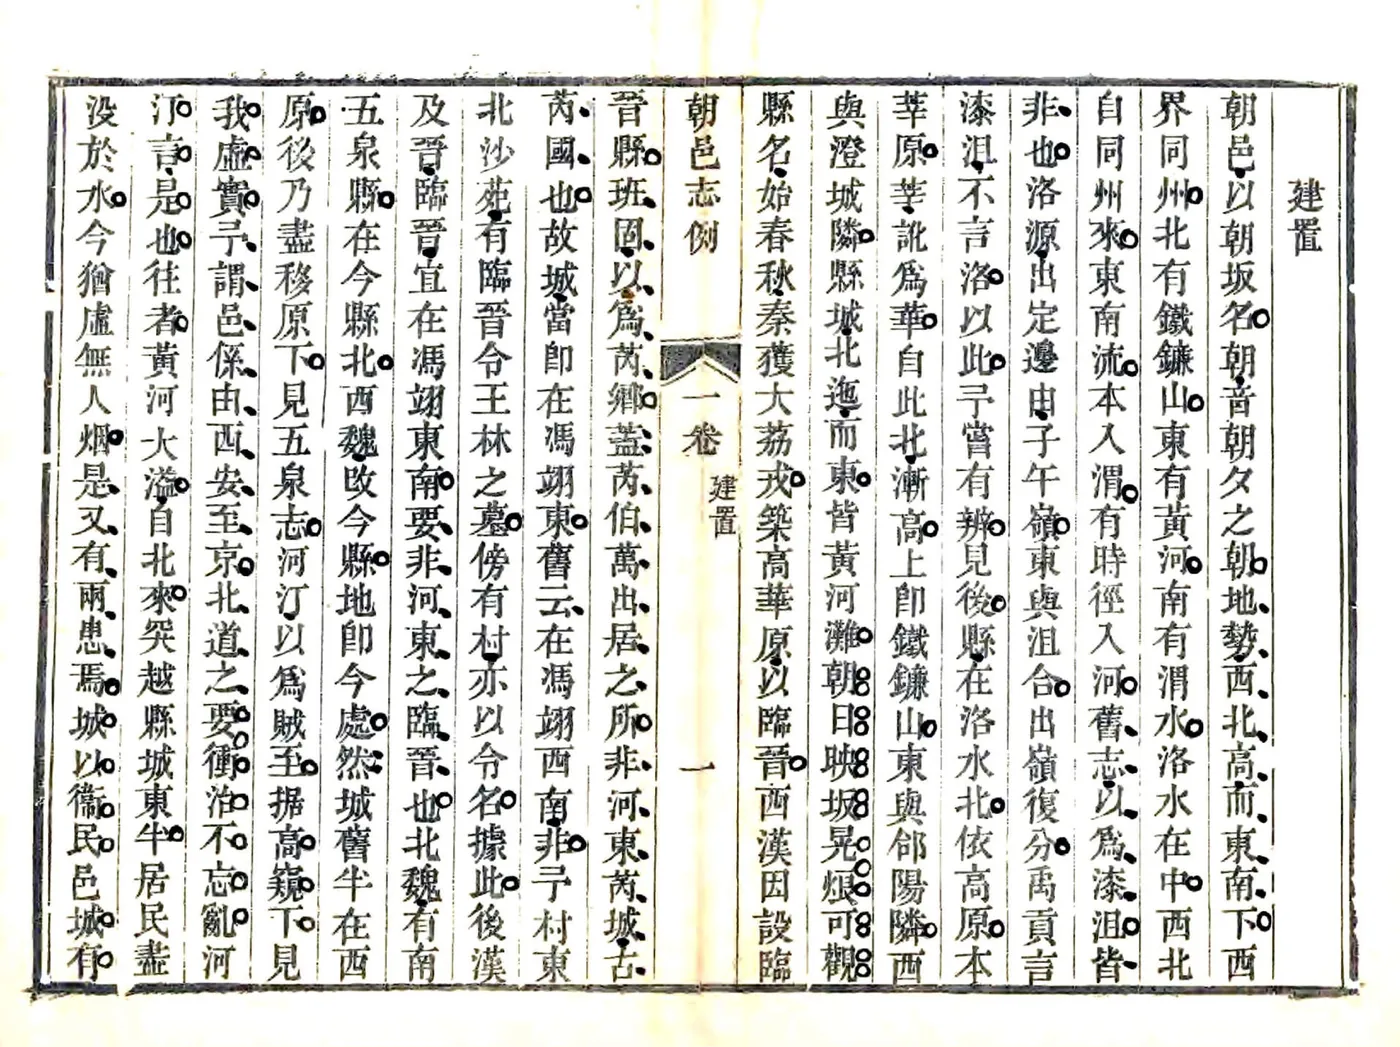 建置
朝邑以朝坂名朝音朝夕之朝地勢西北高而東南下西
界同州北有鐵鐮山東有黃河南有渭水洛水在中西北
自同州來東南流本入渭有時徑入河舊志以爲漆沮皆
非也洛源出定邊由子午嶺東與沮合出嶺復分禹貢言
漆沮不言洛以此予嘗有辨見後縣在洛水北依高原本
莘原莘訛爲華自此北漸高上卽鐵鐮山東與郃陽隣西
與澄城隣縣城北迤而東皆黃河灘朝日映坂晃煜可觀
縣名始春秋秦獲大荔戎築高華原以臨晉西漢因設臨
朝邑志例
一卷
建置
一
晉縣班固以爲芮鄉蓋芮伯萬出居之所非河東芮城古
芮國也故城當卽在馮翊東舊云在馮翊西南非予村東
北沙苑有臨晉令王林之墓傍有村亦以令名據此後漢
及晉臨晉宜在馮翊東南要非河東之臨晉也北魏有南
五泉縣在今縣北西魏改今縣地卽今處然城舊半在西
原後乃盡移原下見五泉志河汀以爲賊至据高窺下見
我虛實予謂邑係由西安至京北道之要衝治不忘亂河
汀言是也往者黃河大溢自北來突越縣城東半居民盡
没於水今猶虛無人烟是又有兩患焉城以衞民邑城有